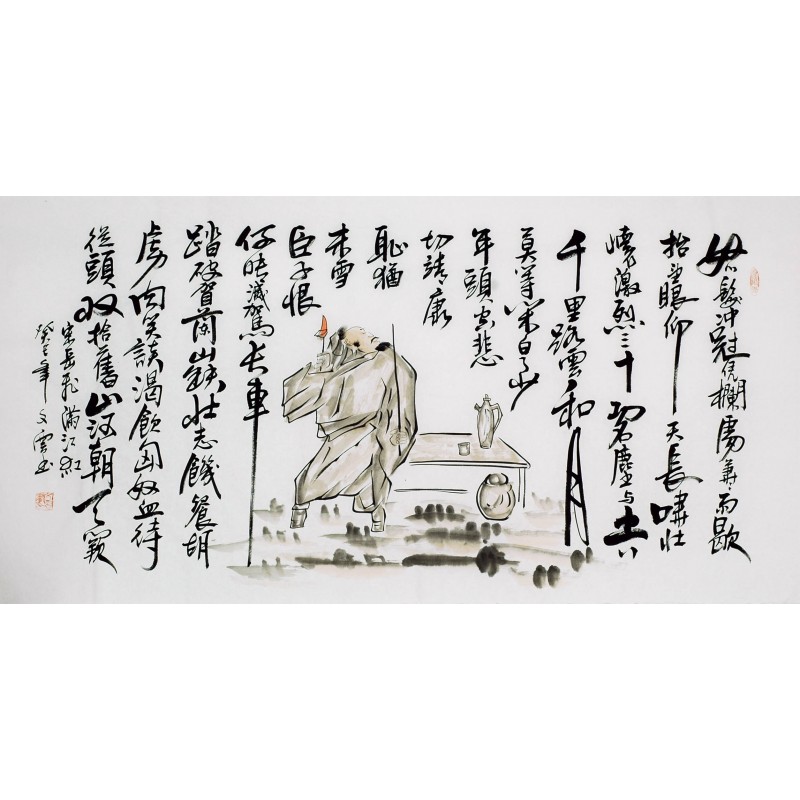 怒髮沖冠凭欄處蕭蕭雨歇
抬望眼仰天長嘯壯
懷激烈三十功名塵与土八
千里路雲和月
莫等闲白了少
年頭空悲
切靖康
恥猶
未雪
臣子恨
何時滅駕长車
踏破賀蘭山缺壮志饑餐胡
虜肉笑談渴飲匈奴血待
從頭收拾舊山河朝天闕
宋岳飛滿江紅
癸巳年文雲书